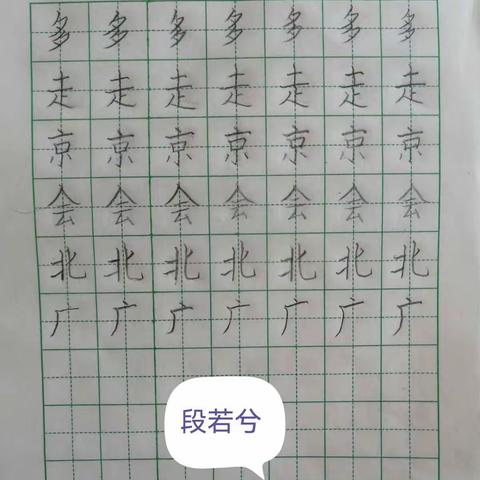 多多多多多多多
走走走走走走走
京京京京京京京
会会会会会会会
北北北北北北北
广广广广广广广
段若兮